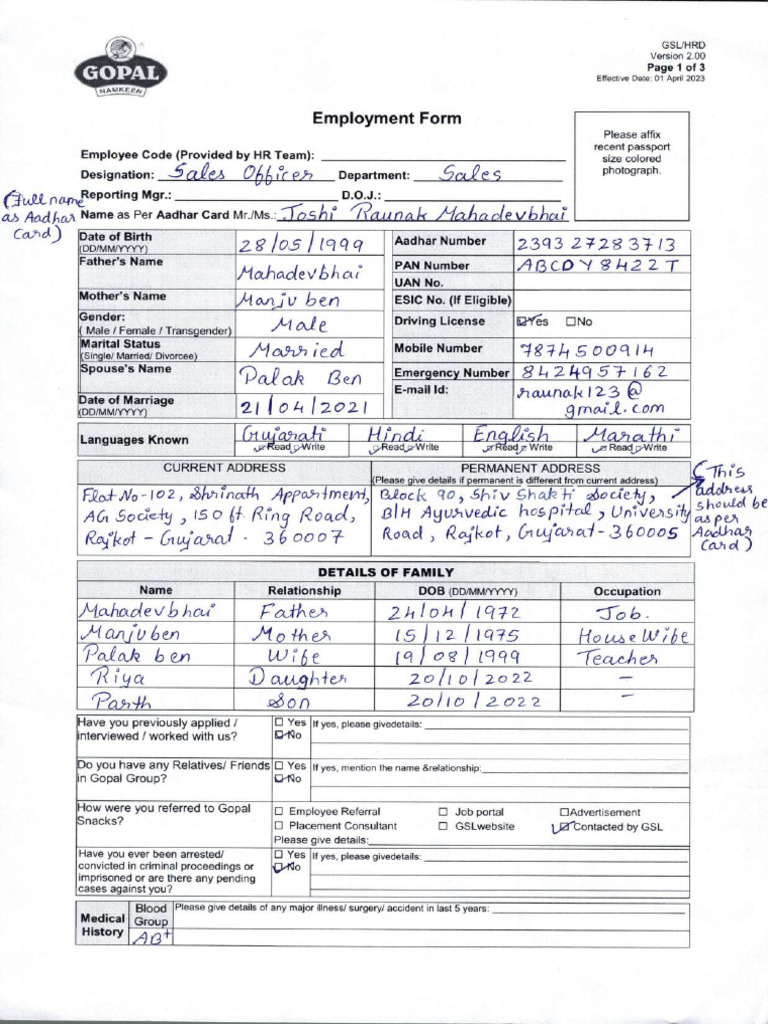 GOPAL
NAMKEEN
GSL/HRD
Version 2.00
Page 1 of 3
Effective Date: 01 April 2023
Employment Form
Please affix
recent passport
size colored
photograph.
Employee Code (Provided by HR Team):
Designation: Sales Officer Department: Sales
Reporting Mgr.: D.O.J.:
(Full name
as Aadhar
Card)
Name as Per Aadhar Card Mr./Ms.: Joshi Raunak Mahadevbhai
Date of Birth
(DD/MM/YYYY)
28/05/1999
Aadhar Number 2393 27283713
Father's Name
Mahadevbhai
PAN Number ABCDY8422T
UAN No.
Mother's Name Manju ben
ESIC No. (If Eligible)
Gender:
( Male / Female / Transgender)
Male
Driving License Yes No
Marital Status
(Single/ Married/ Divorcee)
Married
Mobile Number 7874500914
Spouse's Name
Palak Ben
Emergency Number 8424957162
E-mail Id: raunak123@
gmail.com
Date of Marriage
(DD/MM/YYYY)
21/04/2021
Languages Known Gujarati Hindi English Marathi
Read Write Read Write Read Write Read Write
CURRENT ADDRESS
Flat No-102, Shrinath Appartment,
AG Society, 150 ft. Ring Road,
Rajkot - Gujarat - 360007
PERMANENT ADDRESS
(Please give details if permanent is different from current address)
Block 90, Shiv Shakti Society,
B/H Ayurvedic hospital, University
Road, Rajkot, Gujarat - 360005
(This
address
should be
as per
Aadhar
Card)
DETAILS OF FAMILY
Name Relationship DOB (DD/MM/YYYY) Occupation
Mahadevbhai Father 24/04/1972 Job.
Manjuben Mother 15/12/1975 House Wife
Palak ben Wife 19/08/1999 Teacher
Riya Daughter 20/10/2022 -
Parth Son 20/10/2022 -
Have you previously applied /
interviewed / worked with us?
Yes
No
If yes, please givedetails:
Do you have any Relatives/ Friends
in Gopal Group?
Yes
No
If yes, mention the name &relationship:
How were you referred to Gopal
Snacks?
Employee Referral Job portal Advertisement
Placement Consultant GSLwebsite Contacted by GSL
Please give details:
Have you ever been arrested/
convicted in criminal proceedings or
imprisoned or are there any pending
cases against you?
Yes
No
If yes, please givedetails:
Medical
History
Blood
Group
AB+
Please give details of any major illness/ surgery/ accident in last 5 years: